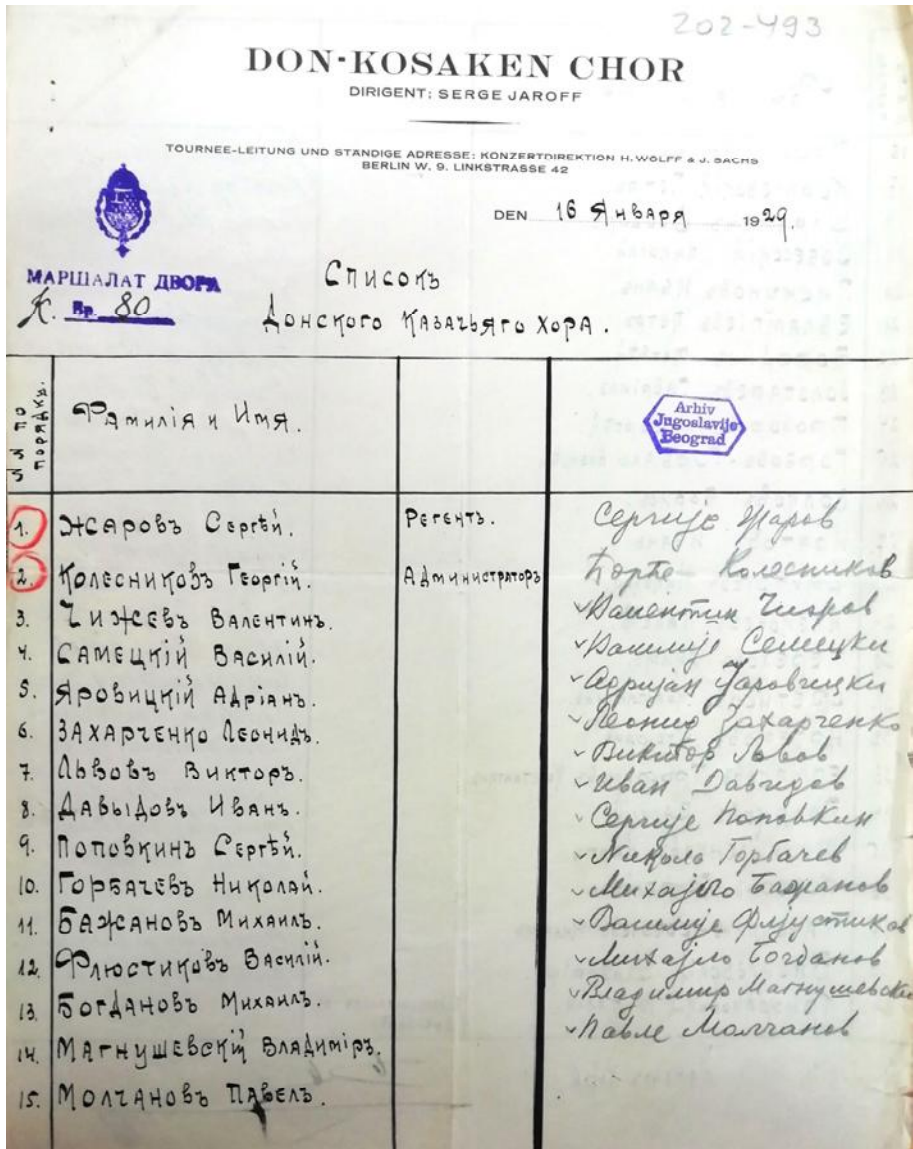 202-493
DON-KOSAKEN CHOR
DIRIGENT: SERGE JAROFF
TOURNEE-LEITUNG UND STÄNDIGE ADRESSE: KONZERTDIREKTION H. WOLFF & J. SACHS
BERLIN W. 9. LINKSTRASSE 42
DEN 16 Января 1929.
МАРШАЛАТ ДВОРА
К. Бр. 80
Списокъ
Донского Казачьяго Хора.
№№ по порядку. Фамилія и Имя.
Arhiv
Jugoslavije
Beograd
1. Жаровъ Сергѣй. Регентъ. Сергије Жаров
2. Колесниковъ Георгій. Администраторъ Ђорђе Колесников
3. Чижевъ Валентинъ. Валентин Чижов
4. Самецкій Василій. Василије Семецки
5. Яровицкій Адріанъ. Адријан Јаровицки
6. Захарченко Леонидъ. Леонид Захарченко
7. Львовъ Викторъ. Виктор Лвов
8. Давыдовъ Иванъ. Иван Давидов
9. Поповкинъ Сергѣй. Сергије Поповкин
10. Горбачевъ Николай. Никола Горбачев
11. Бажановъ Михаилъ. Михајло Бажанов
12. Флюстиковъ Василій. Василије Флјустиков
13. Богдановъ Михаилъ. Михајло Богданов
14. Магнушевскій Владиміръ. Владимир Магнушевски
15. Молчановъ Павелъ. Павле Молчанов